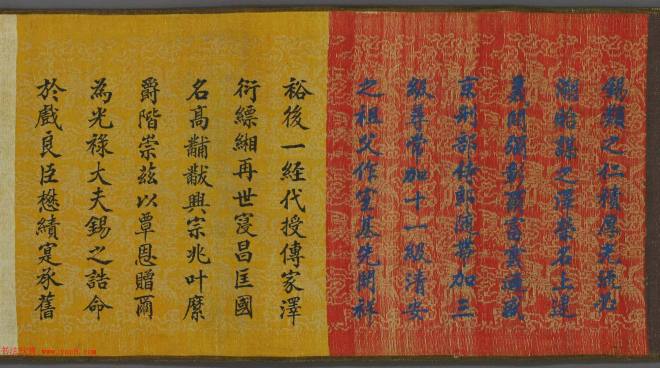 錫類之仁積厚光流必
溯貽謀之澤榮名上逮
問彌彰爾富盛
京刑部侍郎隨帶加三
級尋常加十一級清安
之祖父作室基先開祥
裕後一經代授傳家澤
衍縹緗再世寖昌匡國
名高黼黻興宗兆叶縻
爵階崇茲以覃恩贈爾
為光祿大夫錫之誥命
於戲良臣懋績寔承舊